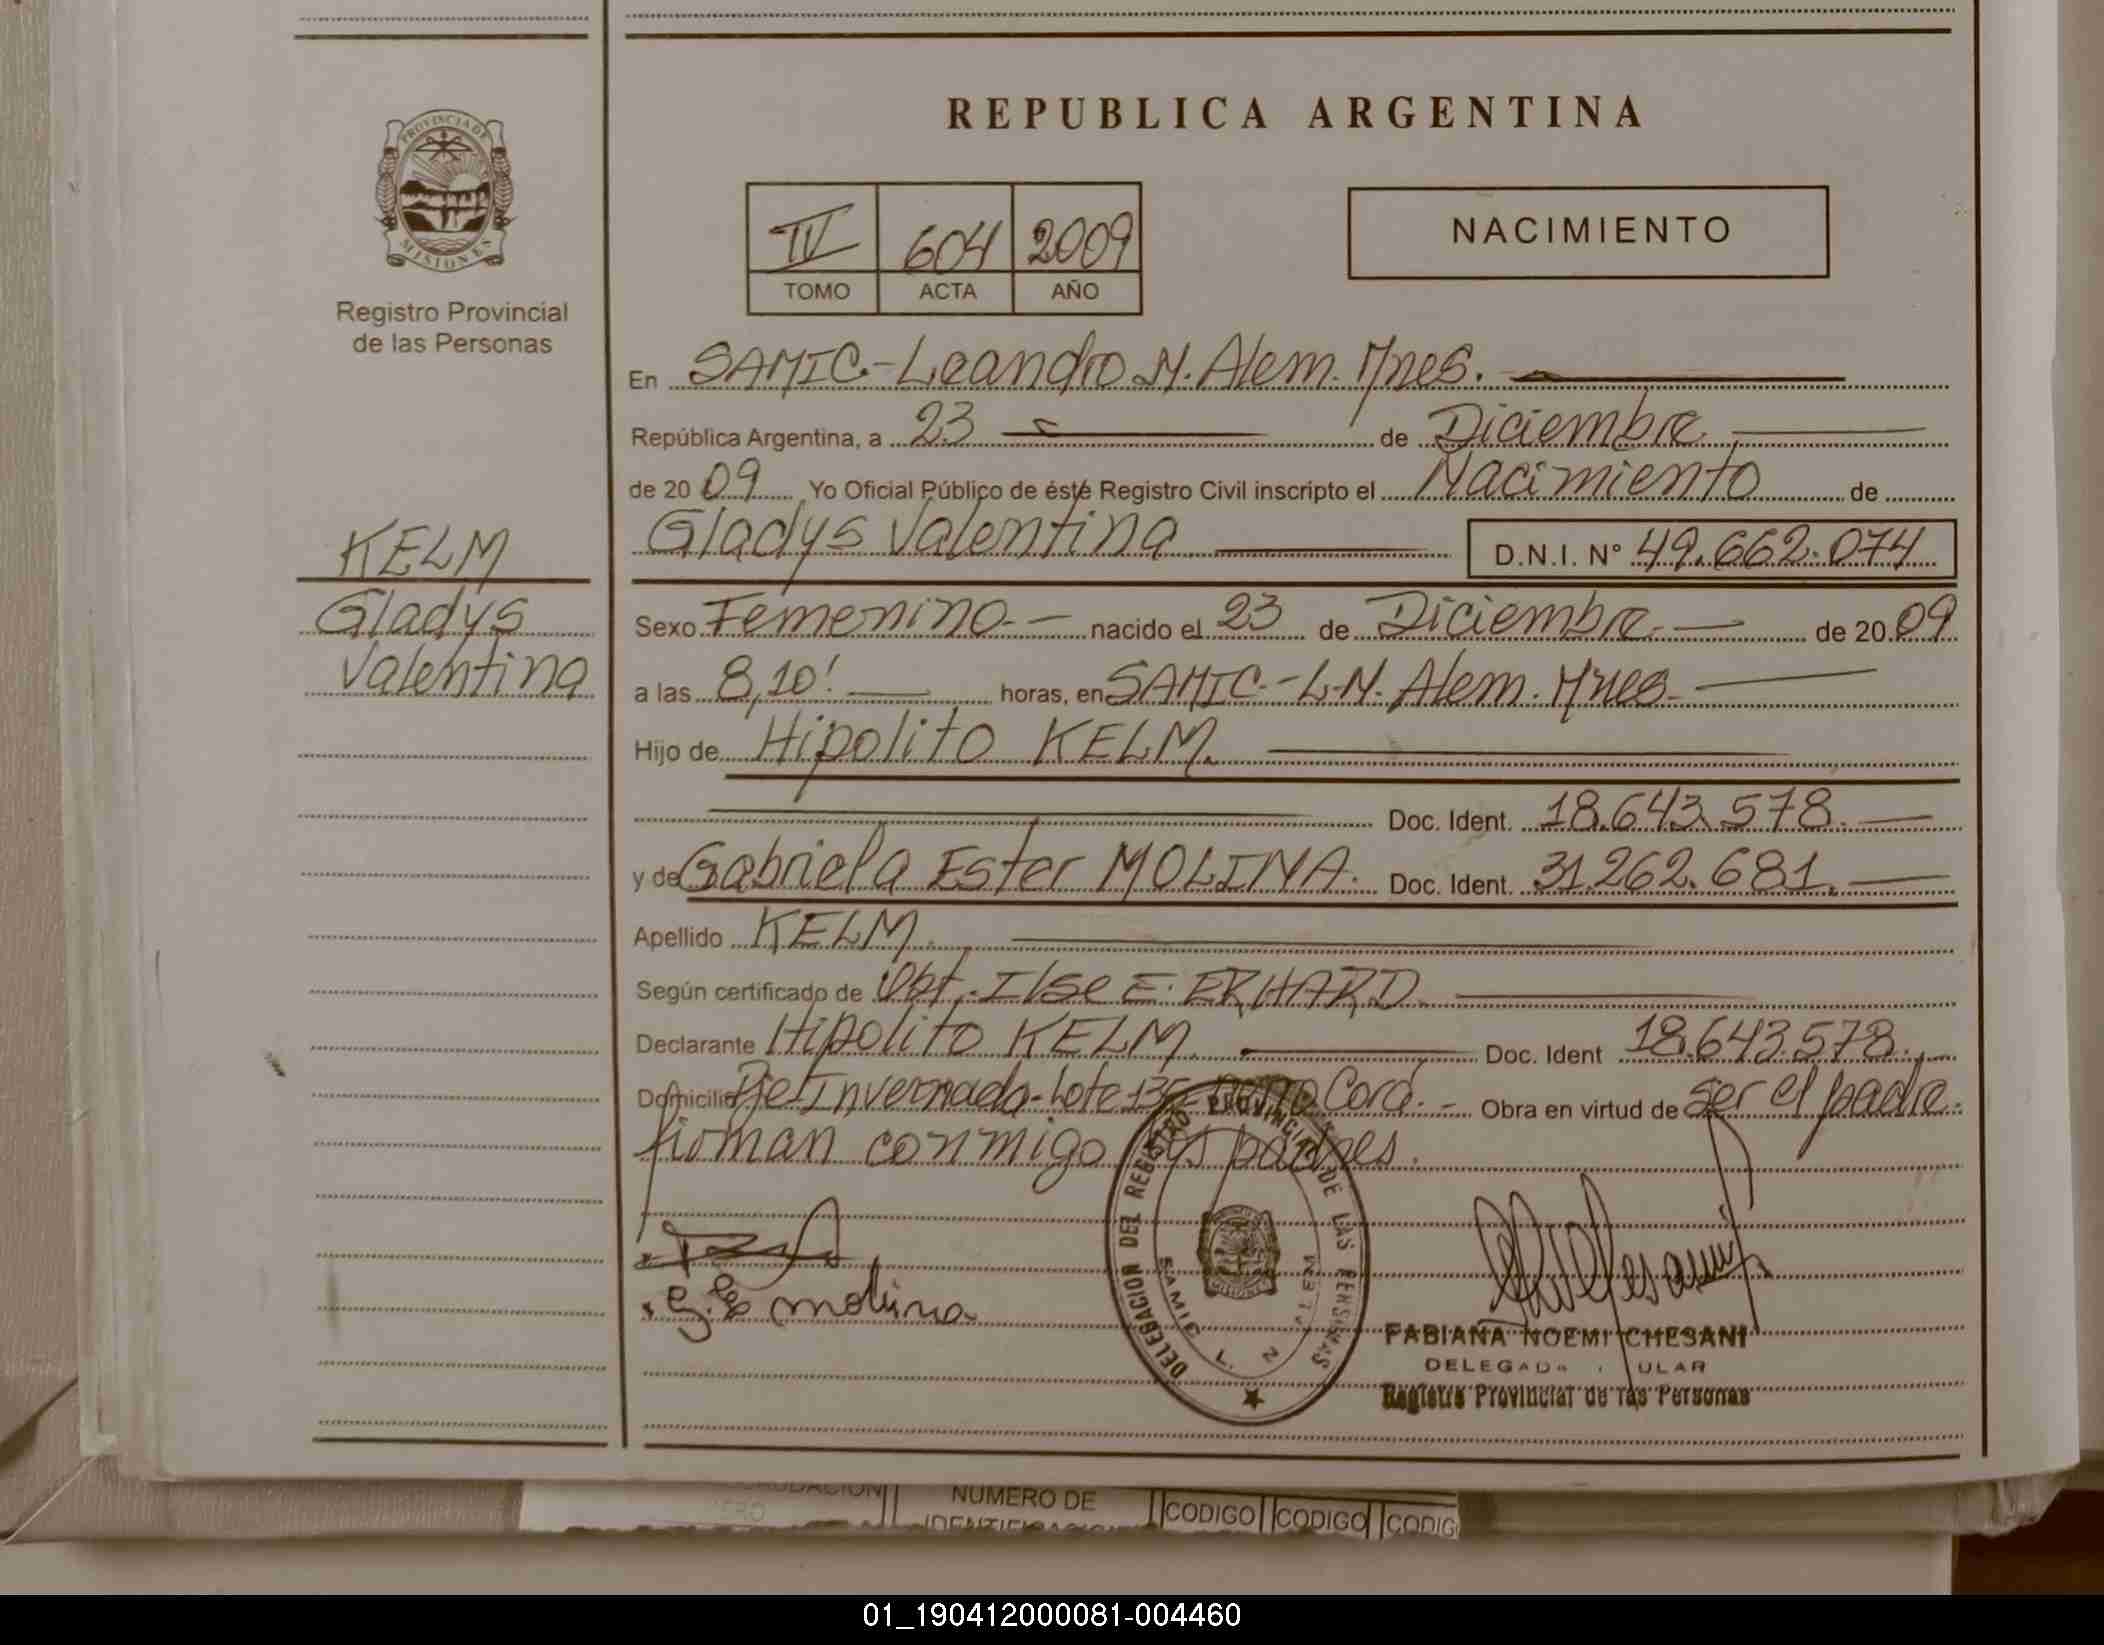 REPUBLICA ARGENTINA
PROVINCIA DE
MISIONES
Registro Provincial
de las Personas
IV 604 2009
TOMO ACTA AÑO
NACIMIENTO
En SAMIC.-Leandro N. Alem. Mnes.
República Argentina, a 23 de Diciembre
de 20 09 Yo Oficial Público de éste Registro Civil inscripto el Nacimiento de
Gladys Valentina D.N.I. N° 49.662.074
KELM
Gladys
Valentina
Sexo Femenino.- nacido el 23 de Diciembre de 20 09
a las 8,10' horas, en SAMIC.-L.N. Alem. Mnes.
Hijo de Hipolito KELM.
Doc. Ident. 18.643.578.
y de Gabriela Ester MOLINA. Doc. Ident. 31.262.681.
Apellido KELM.
Según certificado de Obt. Ilse E. ERHARD
Declarante Hipolito KELM Doc. Ident 18.643.578.
Domicilio Pje Invernada-Lote 135- Cora.- Obra en virtud de ser el padre.
firman conmigo los padres.
molina
DELEGACION DEL REGISTRO PROVINCIAL DE LAS PERSONAS
SAMIC L. N. ALEM
FABIANA NOEMI CHESANI
DELEGADA ULAR
Registro Provincial de las Personas
NUMERO DE
CODIGO CODIGO CODIG
01_190412000081-004460